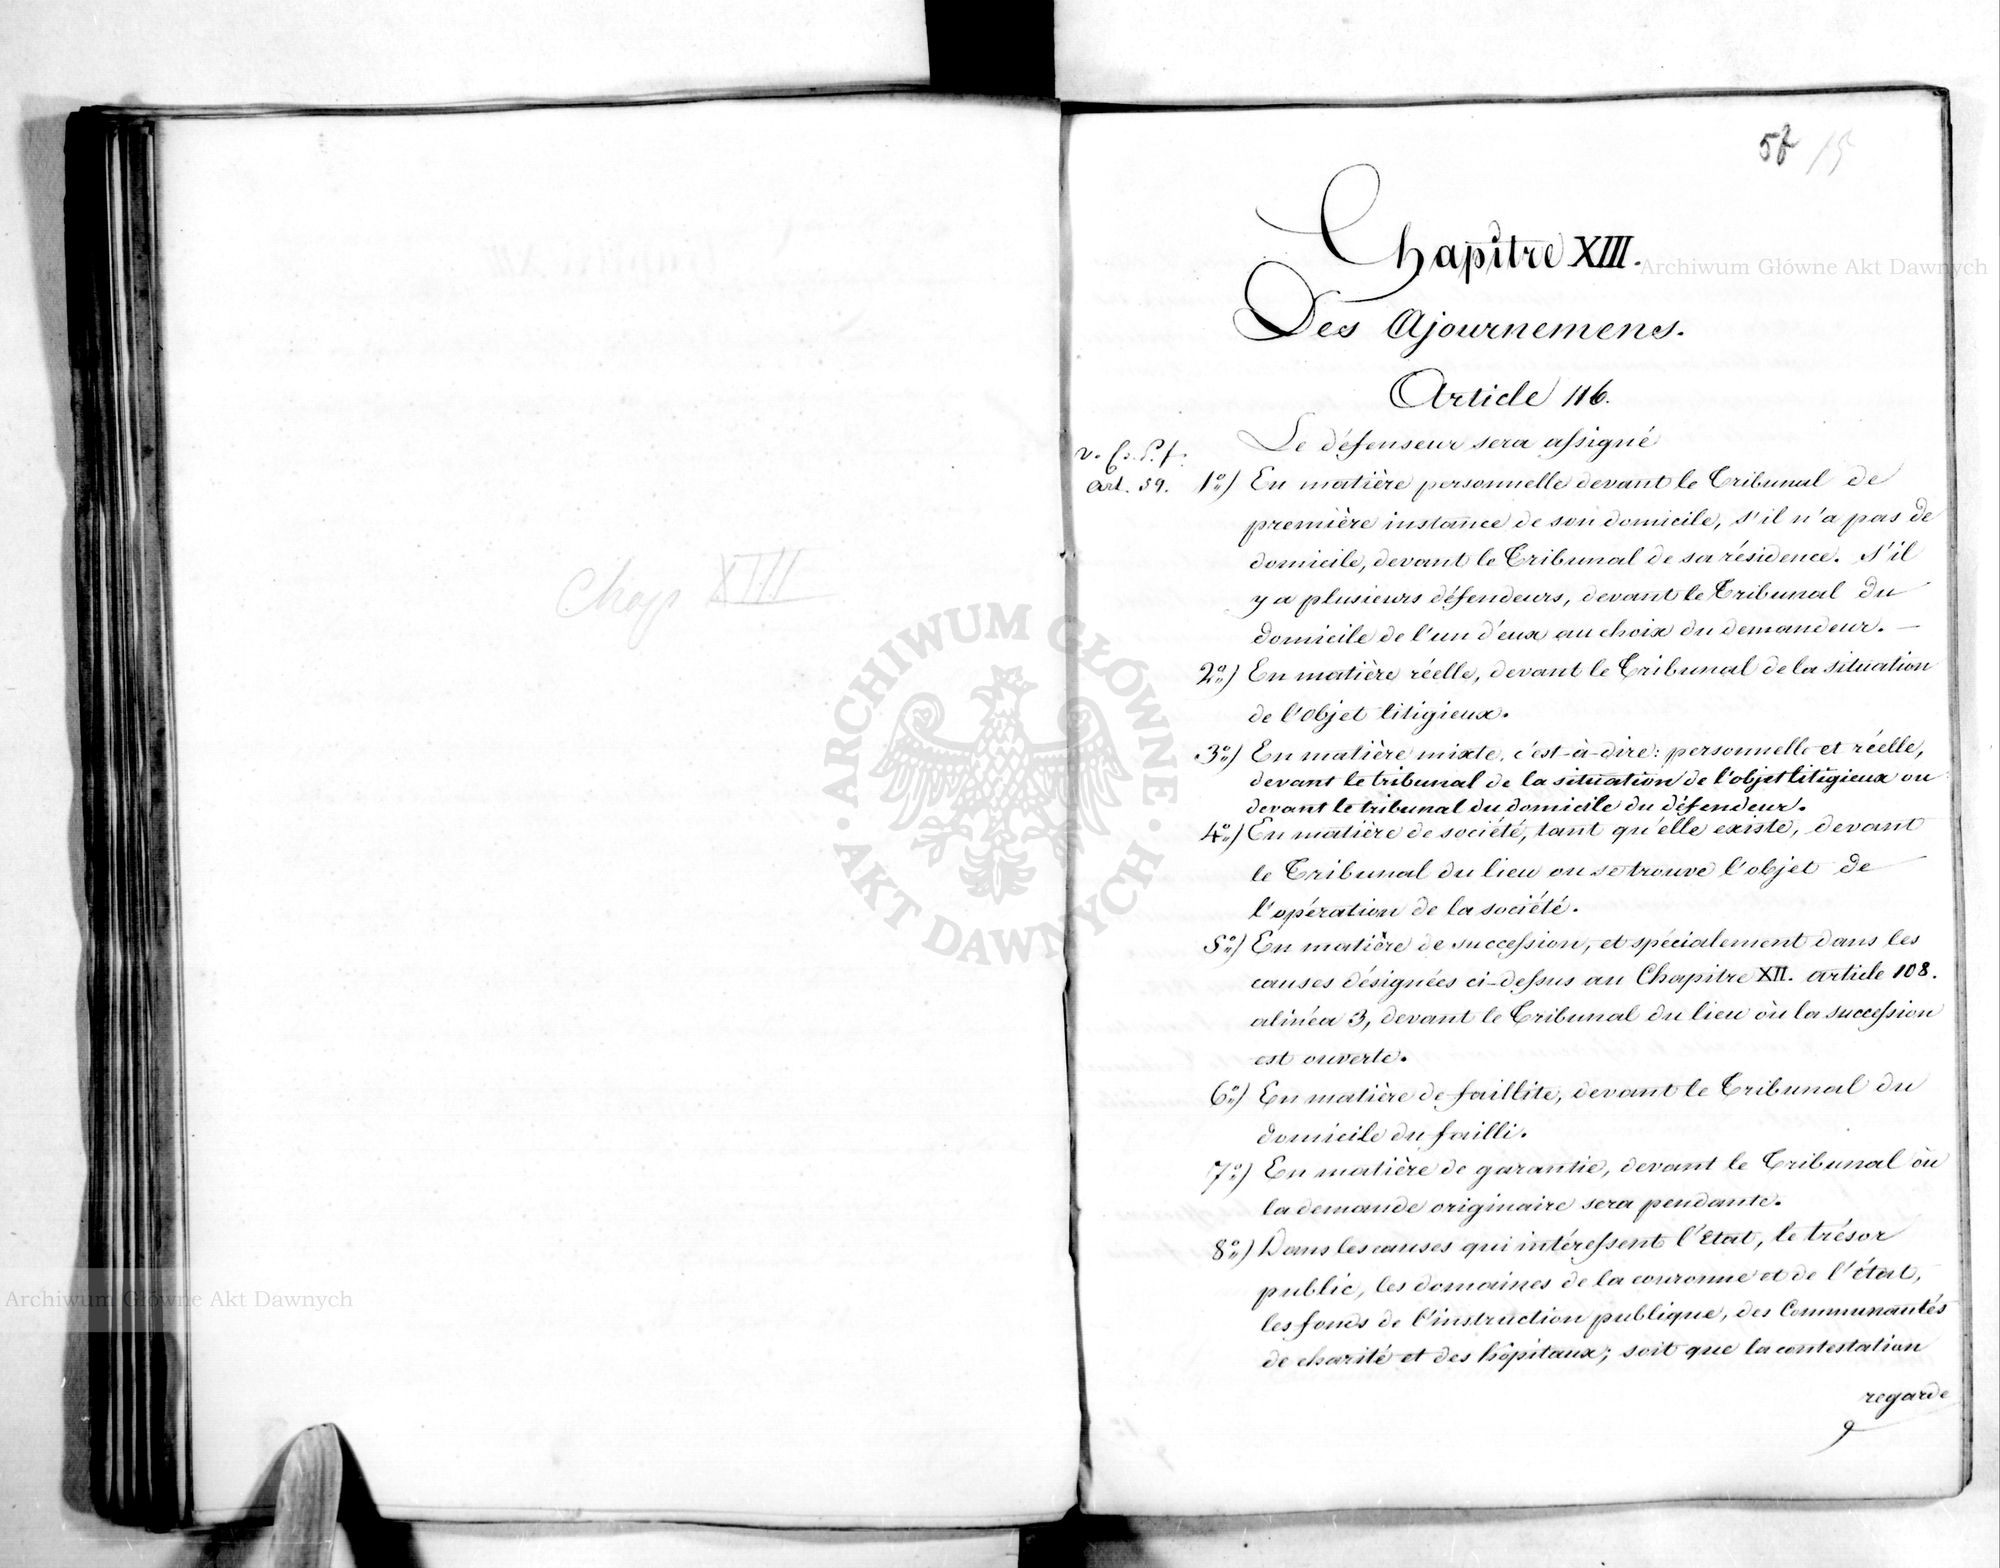 Chap XIII
57 15
Chapitre XIII.
Des Ajournemens.
Article 116.
Le défenseur sera assigné
v. C. P. f.
art. 59.
1º) En matière personnelle devant le Tribunal de
première instance de son domicile, s'il n'a pas de
domicile, devant le Tribunal de sa résidence. S'il
y a plusieurs défendeurs, devant le Tribunal du
domicile de l'un d'eux au choix du demandeur. —
2º) En matière réelle, devant le Tribunal de la situation
de l'objet litigieux.
3º) En matière mixte, c'est-à-dire: personnelle et réelle,
devant le tribunal de la situation de l'objet litigieux ou
devant le tribunal du domicile du défendeur.
4º) En matière de société, tant qu'elle existe, devant
le Tribunal du lieu ou se trouve l'objet de
l'opération de la société.
5º) En matière de succession, et spécialement dans les
causes désignées ci-dessus au Chapitre XII. article 108.
alinéa 3, devant le Tribunal du lieu où la succession
est ouverte.
6º) En matière de faillite, devant le Tribunal du
domicile du failli.
7º) En matière de garantie, devant le Tribunal où
la demande originaire sera pendante.
8º) Dans les causes qui intéressent l'Etat, le trésor
public, les domaines de la couronne et de l'état,
les fonds de l'instruction publique, des Communautés
de charité et des hôpitaux; soit que la contestation
regarde
Archiwum Główne Akt Dawnych
ARCHIWUM GŁÓWNE · AKT DAWNYCH ·
Archiwum Główne Akt Dawnych